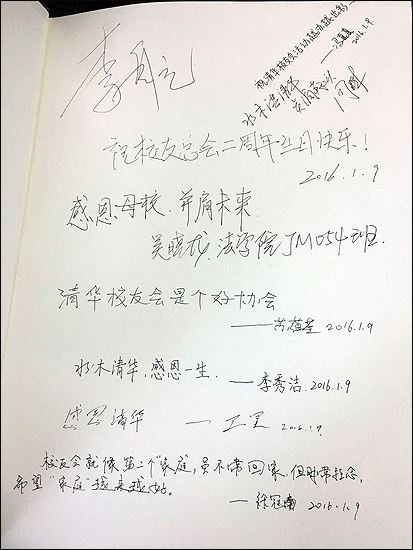 祝清华校友会活动越办越出彩
2016.1.9
水木清华
祝校友总会二周年生日快乐！
2016.1.9
感恩母校，并肩未来
吴晓龙 法学院JM054班
清华校友会是个好协会
2016.1.9
水木清华，感恩一生。——李秀洁.2016.1.9
感恩清华 —— 2016.1.9.
校友会就像第二个“家庭，虽不常回家，但时常挂念，
希望“家庭”越来越好。
——徐冠南 2016.1.9